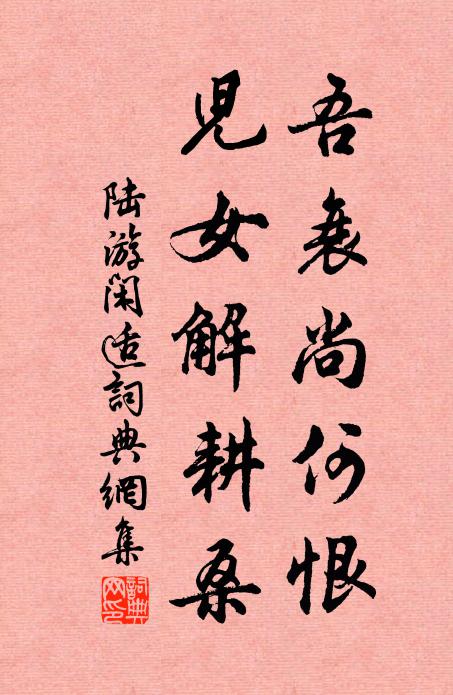 吾衰尚何恨
兒女解耕桑
陆游閑适詞典網集
詞典
网印